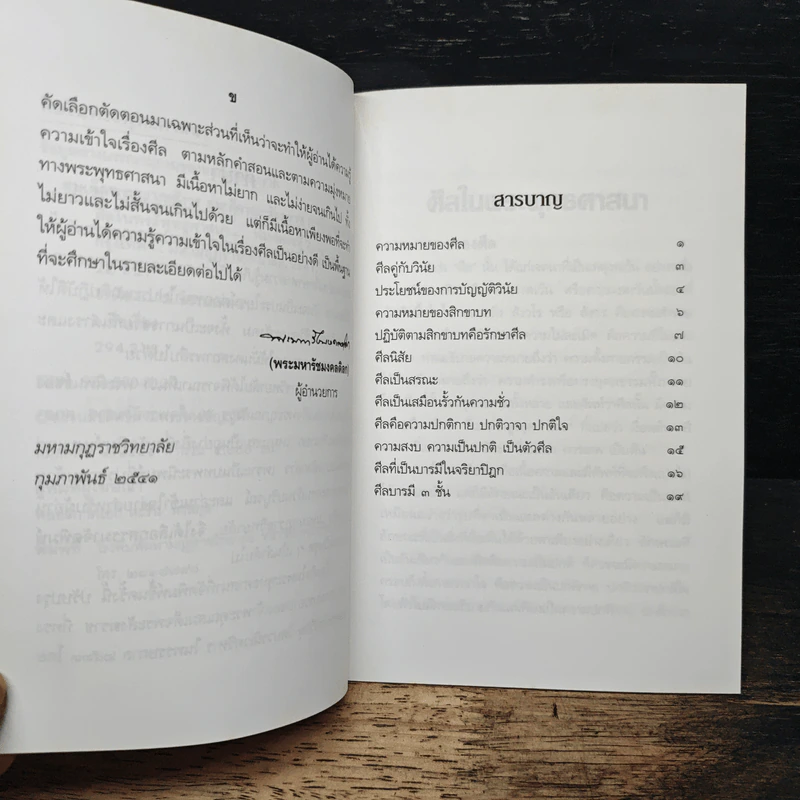 ข
คัดเลือกตัดตอนมาเฉพาะส่วนที่เห็นว่าจะทำให้ผู้อ่านได้ความรู้
ความเข้าใจเรื่องศีล ตามหลักคำสอนและตามความมุ่งหมาย
ทางพระพุทธศาสนา มีเนื้อหาไม่ยาก และไม่ง่ายจนเกินไป ทั้ง
ไม่ยาวและไม่สั้นจนเกินไปด้วย แต่ก็มีเนื้อหาเพียงพอที่จะทำ
ให้ผู้อ่านได้ความรู้ความเข้าใจในเรื่องศีลเป็นอย่างดี เป็นพื้นฐาน
ที่จะศึกษาในรายละเอียดต่อไปได้
(พระมหารัชมงคลดิลก)
ผู้อำนวยการ
มหามกุฏราชวิทยาลัย
กุมภาพันธ์ ๒๕๔๑
สารบาญ
ความหมายของศีล ๑
ศีลคู่กับวินัย ๓
ประโยชน์ของการบัญญัติวินัย ๔
ความหมายของสิกขาบท ๖
ปฏิบัติตามสิกขาบทคือรักษาศีล ๗
ศีลนิสัย ๑๐
ศีลเป็นสรณะ ๑๑
ศีลเป็นเสมือนรั้วกันความชั่ว ๑๒
ศีลคือความปกติกาย ปกติวาจา ปกติใจ ๑๓
ความสงบ ความเป็นปกติ เป็นตัวศีล ๑๕
ศีลที่เป็นบารมีในจริยาปิฎก ๑๖
ศีลบารมี ๓ ชั้น ๑๙